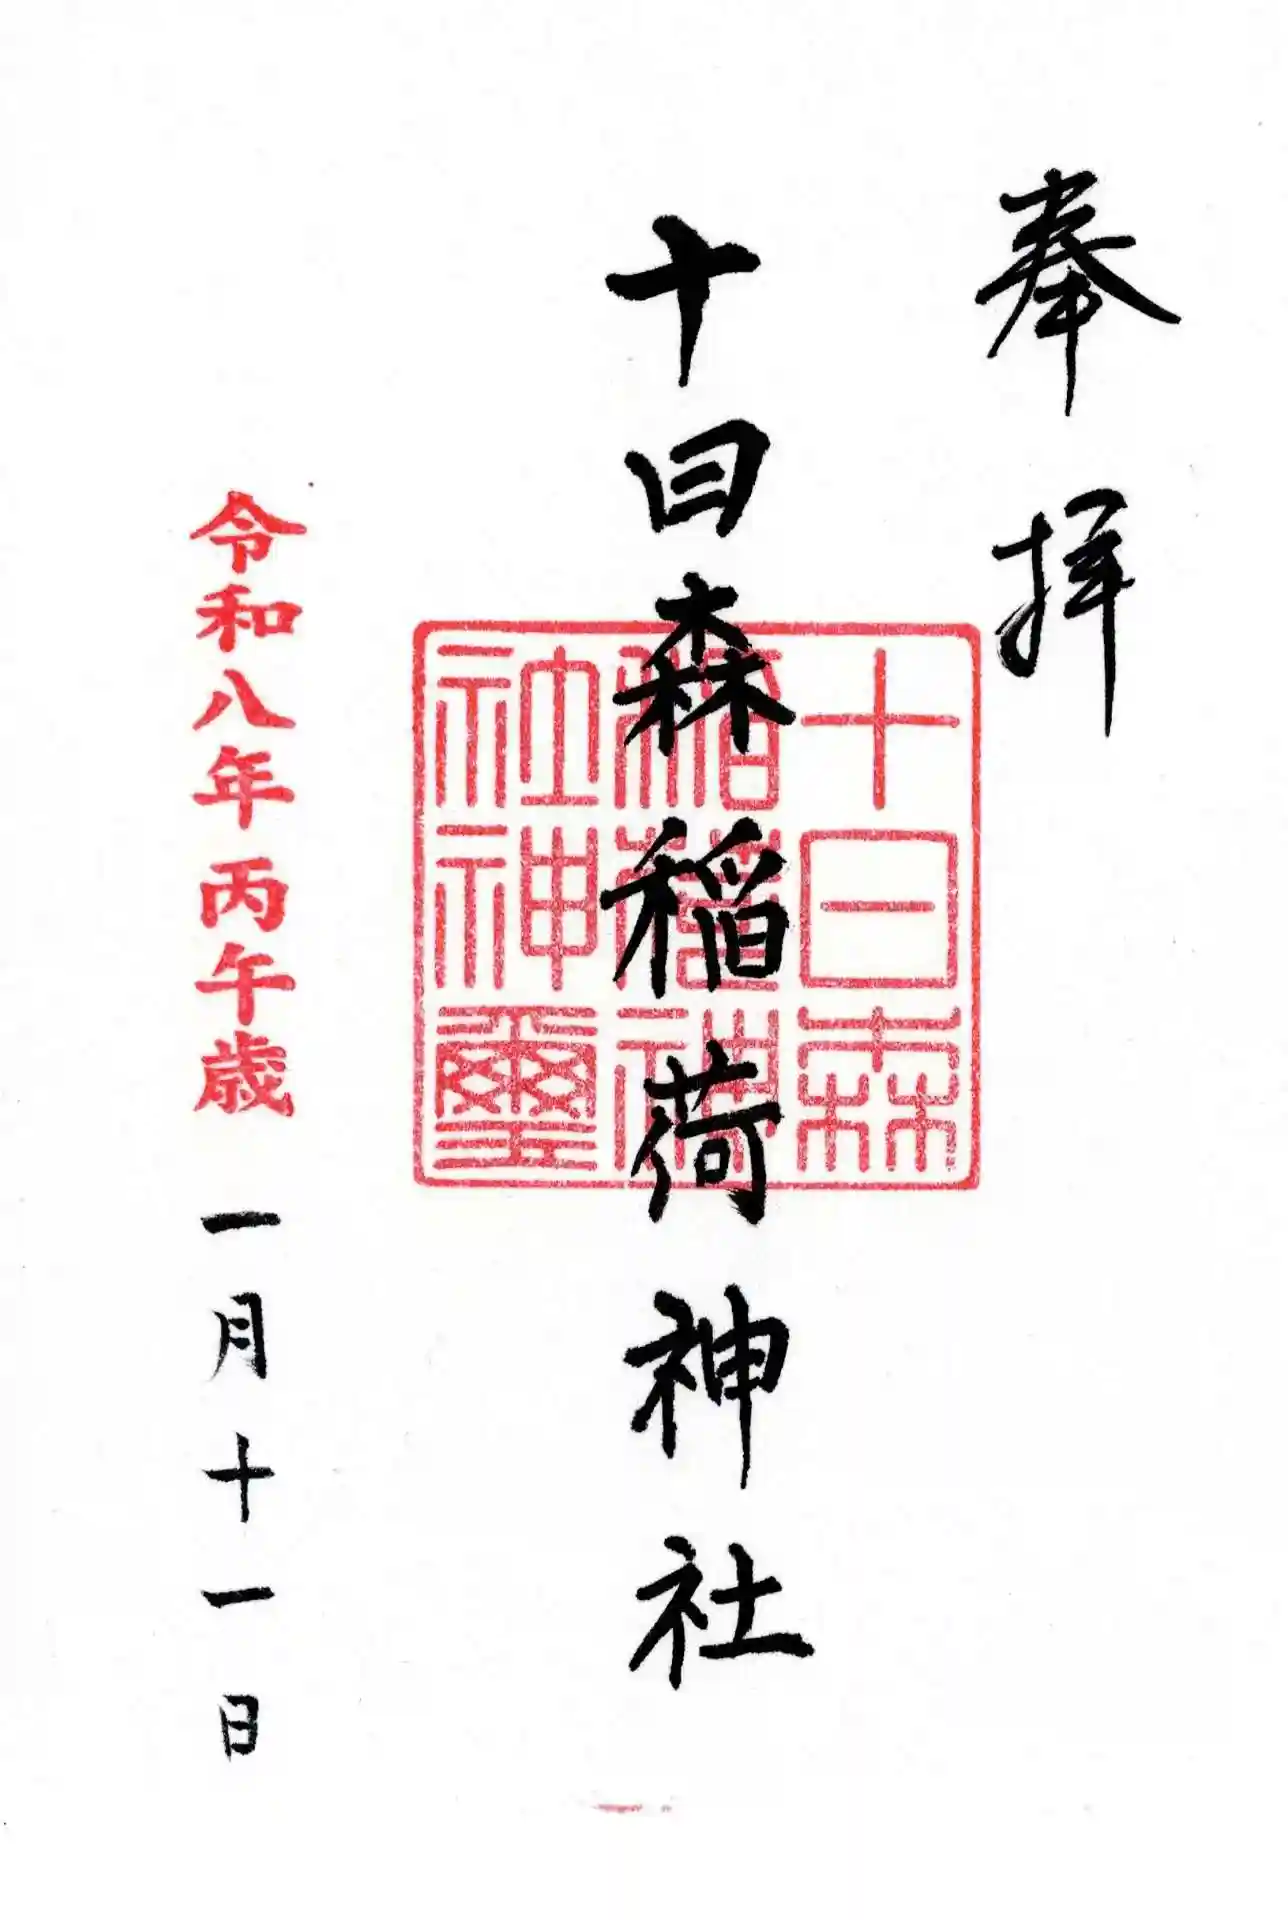 奉拝
十日森稲荷神社
十日森
稲荷神
社神璽
令和八年 丙午歳 一月十一日